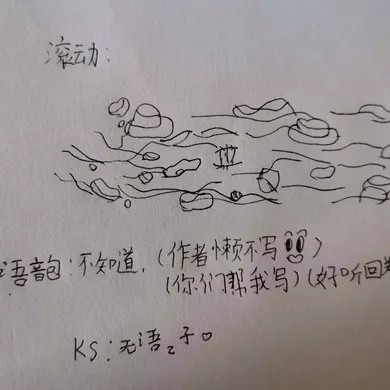 滚动:
语音包:不知道,(作者懒不写)
(你们帮我写)(好听回
KS:无语z子。